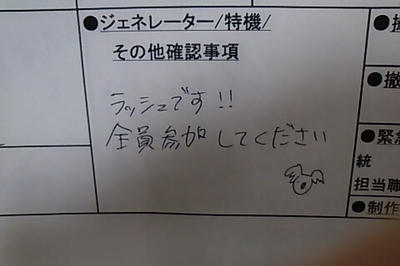 ●ジェネレーター/特機/
その他確認事項
ラッシュです!!
全員参加してください
●撤
●緊急
統
担当職
●制作